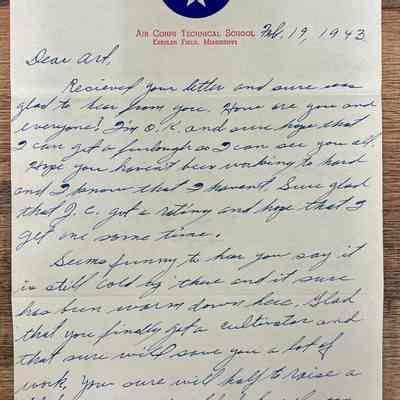 AIR CORPS TECHNICAL SCHOOL
KEESLER FIELD, MISSISSIPPI
Feb. 19, 1943
Dear Art,
Recieved your letter and sure was
glad to hear from you. How are you and
everyone? I'm O.K. and sure hope that
I can get a furlough so I can see you all.
Hope you haven't been working to hard
and I know that I haven't. Sure glad
that J.C. got a rating and hope that I
get one some time.
Seems funny to hear you say it
is still cold up there and it sure
has been warm down here. Glad
that you finally got a cultivator and
that sure will save you a lot of
work. You sure will half to raise a